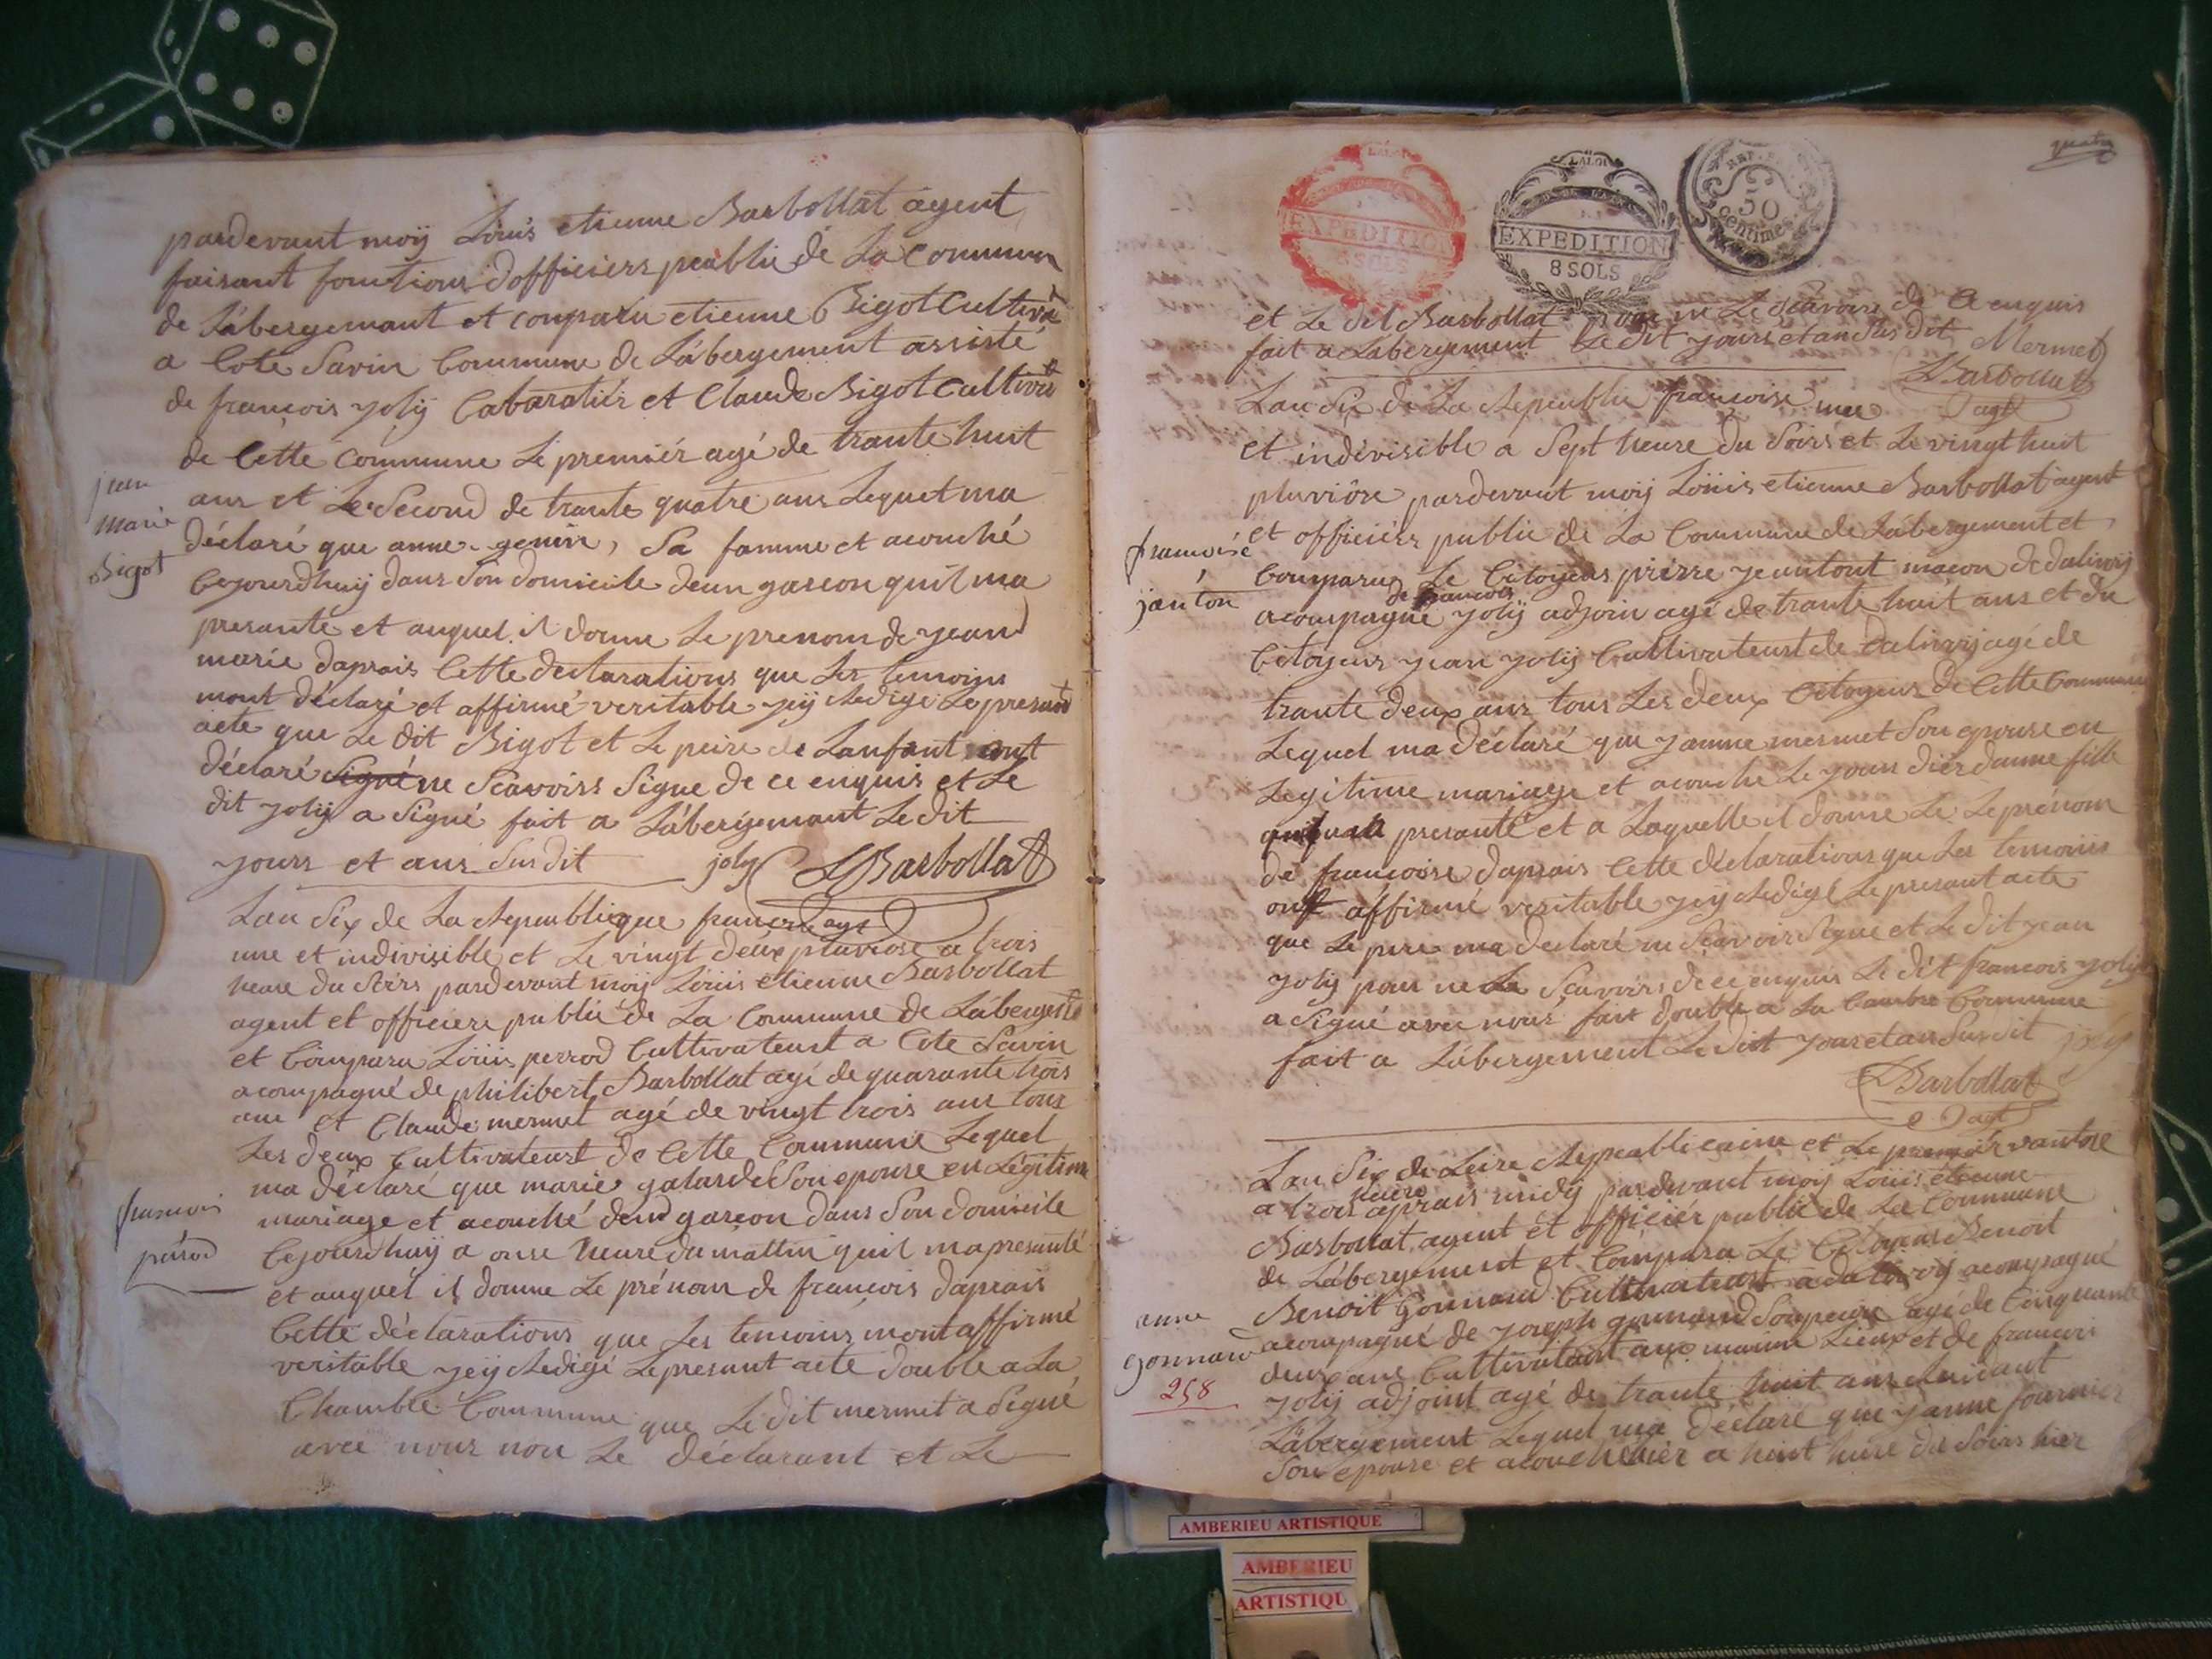 pardevant moÿ Louis etienne Barbollat agent
faisant fonctions dofficiers peublic de La Commun
de Labergemant et conparu etienne Bigot Cultiva
a Cote Savin Commune de Labergement assisté
de françois Jolÿ Cabaratiér et Claude Bigot Cultivat
de Cette Commune Le premiér agé de trante huit
jean
marie
Bigot
ans et Le Second de trante quatre ans Lequel ma
déclaré que anne genin, Sa famme et acouché
Cejourdhuÿ dans Son domicile deun garcon quil ma
presanté et auquel il donne Le prenom de jean
marie daprais Cette declarations que Les temoins
mont déclaré et affirmé veritable jeÿ Redigé Le presant
acte que Le dit Bigot et Le peire de Lanfant ont
déclaré Signé ne Scavoirs Signe de ce enquis et Le
dit Jolÿ a Signé fait a Labergemant Le dit
jours et ans Susdit joly LBarbollat
Lan Six de La Republique francoise
une et indivisible et Le vingt deux pluviose a trois
heure du Soirs pardevant moÿ Loüis etienne Barbollat
agent et officiere public de La Commune de Labergemt
et Comparu Loüis perrod Cultivateust a Cote Savin
acompagné de philibert Barbollat agé de quarante trois
ans et Claude mermet agé de vingt trois ans tous
Les deux Cultivateust de Cette Commune Lequel
ma déclaré que marie galarde Son epouse en Légitime
francois
pérod
mariage et acouché deun garcon dans Son domicile
Cejourdhuÿ a onse heure du mattin quil ma presanté
et auquel il donne Le prénom de françois daprais
Cette déclarations que Les temoins mont affirmé
veritable jeÿ Redigé Le presant acte double a La
Chambre Commune que Le dit mermet a Signé
avec nous non Le déclarant et Le
quatre
LALOI
EXPEDITION
8 SOLS
LALOI
EXPEDITION
8 SOLS
REP. F.
50
centimes
et Le dit Barbollat pour ne Le Scavoirs de Ce enquis
fait a Labergement Le dit jours et an Susdit Mermet
LBarbollat
agt
Lan Six de La Republic françoise une
et indivisible a Sept heure du Soirs et Le vingt huit
pluviôse pardevant moÿ Loüis etienne Barbollat agent
et officiérs public de La Commune de Labergement et
françoise
janton
Comparu Le Citoyens piérre jeantont maçon de dalivoÿ
acompagné de francois Jolÿ adjoin agé de trante huit ans et du
Citoyens jean Jolÿ Cultivateust de Dalivoÿ agé de
trante deux ans tous Les deux Citoyens de Cette Commune
Lequel ma déclaré que janne mermet Son epouse en
Legitime mariage et acouché Le jour diér daune fille
quil ma presanté et a Laquelle il donne Le Le prénom
de francoise daprais Cette déclarations que Les temoins
ont affirmé veritable jeÿ Redigé Le presant acte
que Le pere ma declaré ne Scavoir Signe et Le dit jean
Jolÿ pour ne Le Scavoirs de ce enquis Le dit francois Jolÿ
a Signé avec nous fait double a La Cambre Commune
fait a Labergement Le dit jour et an Susdit joly
LBarbollat
agt
Lan Six de Leire Republicaine et Le premiér vantose
a trois heure aprais midÿ pardevant moÿ Loüis étienne
Barbollat agent et officier public de La Commune
de Labergement et Comparu Le Citoyens Benoit
Benoit Gonnand Cultivateust a dalivoÿ acompagné
anne
gonnand
258
acompagné de joseph gonnand Son peire agé de Cinquante
deux ans Cultivateust aux maime Lieux et de francois
Jolÿ adjoint agé de trante huit ans Residant
Labergement Lequel ma déclaré que janne fournier
Son epouse et acouché hier a huit hure du Soirs hier
AMBERIEU ARTISTIQUE
AMBERIEU
ARTISTIQU